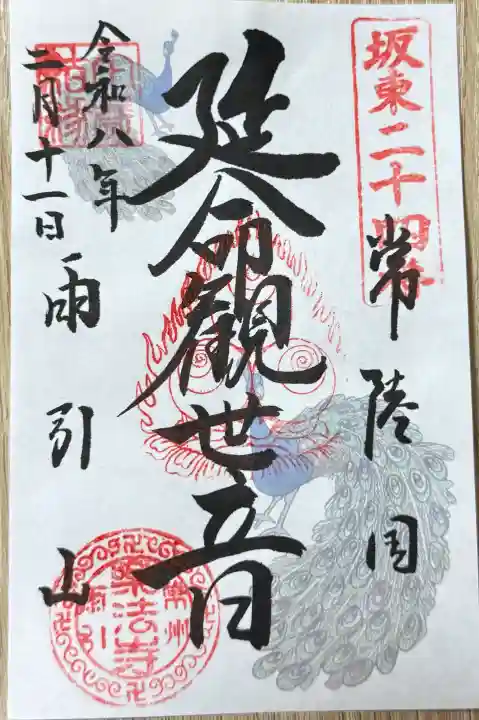 坂東二十四番
常陸国
延命観世音
令和八年
二月十一日
雨引山
常州
楽法寺
雨引山